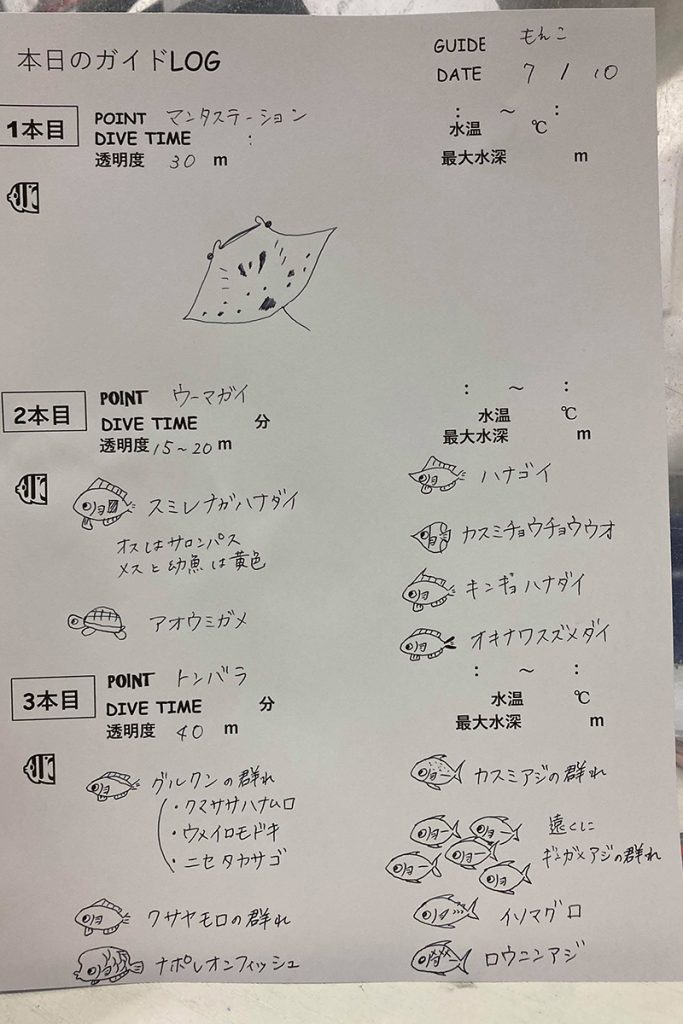 本日のガイドLOG
GUIDE もんこ
DATE 7 / 10
1本目
POINT マンタステーション
DIVE TIME :
透明度 30 m
: ～ :
水温 ℃
最大水深 m
2本目
POINT ウーマガイ
DIVE TIME 分
透明度 15～20 m
: ～ :
水温 ℃
最大水深 m
スミレナガハナダイ
オスはサロンパス
メスと幼魚は黄色
アオウミガメ
ハナゴイ
カスミチョウチョウウオ
キンギョハナダイ
オキナワスズメダイ
3本目
POINT トンバラ
DIVE TIME 分
透明度 40 m
: ～ :
水温 ℃
最大水深 m
グルクンの群れ
・クマササハナムロ
・ウメイロモドキ
・ニセタカサゴ
クサヤモロの群れ
ナポレオンフィッシュ
カスミアジの群れ
遠くに
ギンガメアジの群れ
イソマグロ
ロウニンアジ